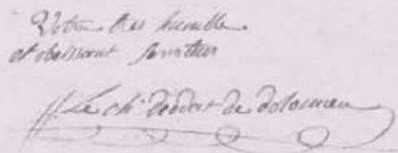 Votre tres humble
et obeissant serviteur
Le ch. deodat de dolomieu